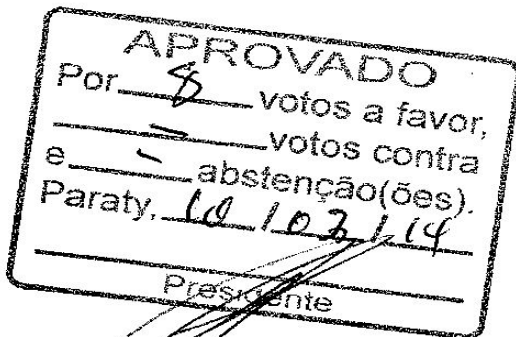 APROVADO
Por 8 votos a favor,
- votos contra
e - abstenção(ões).
Paraty, 10 / 03 / 14
Presidente